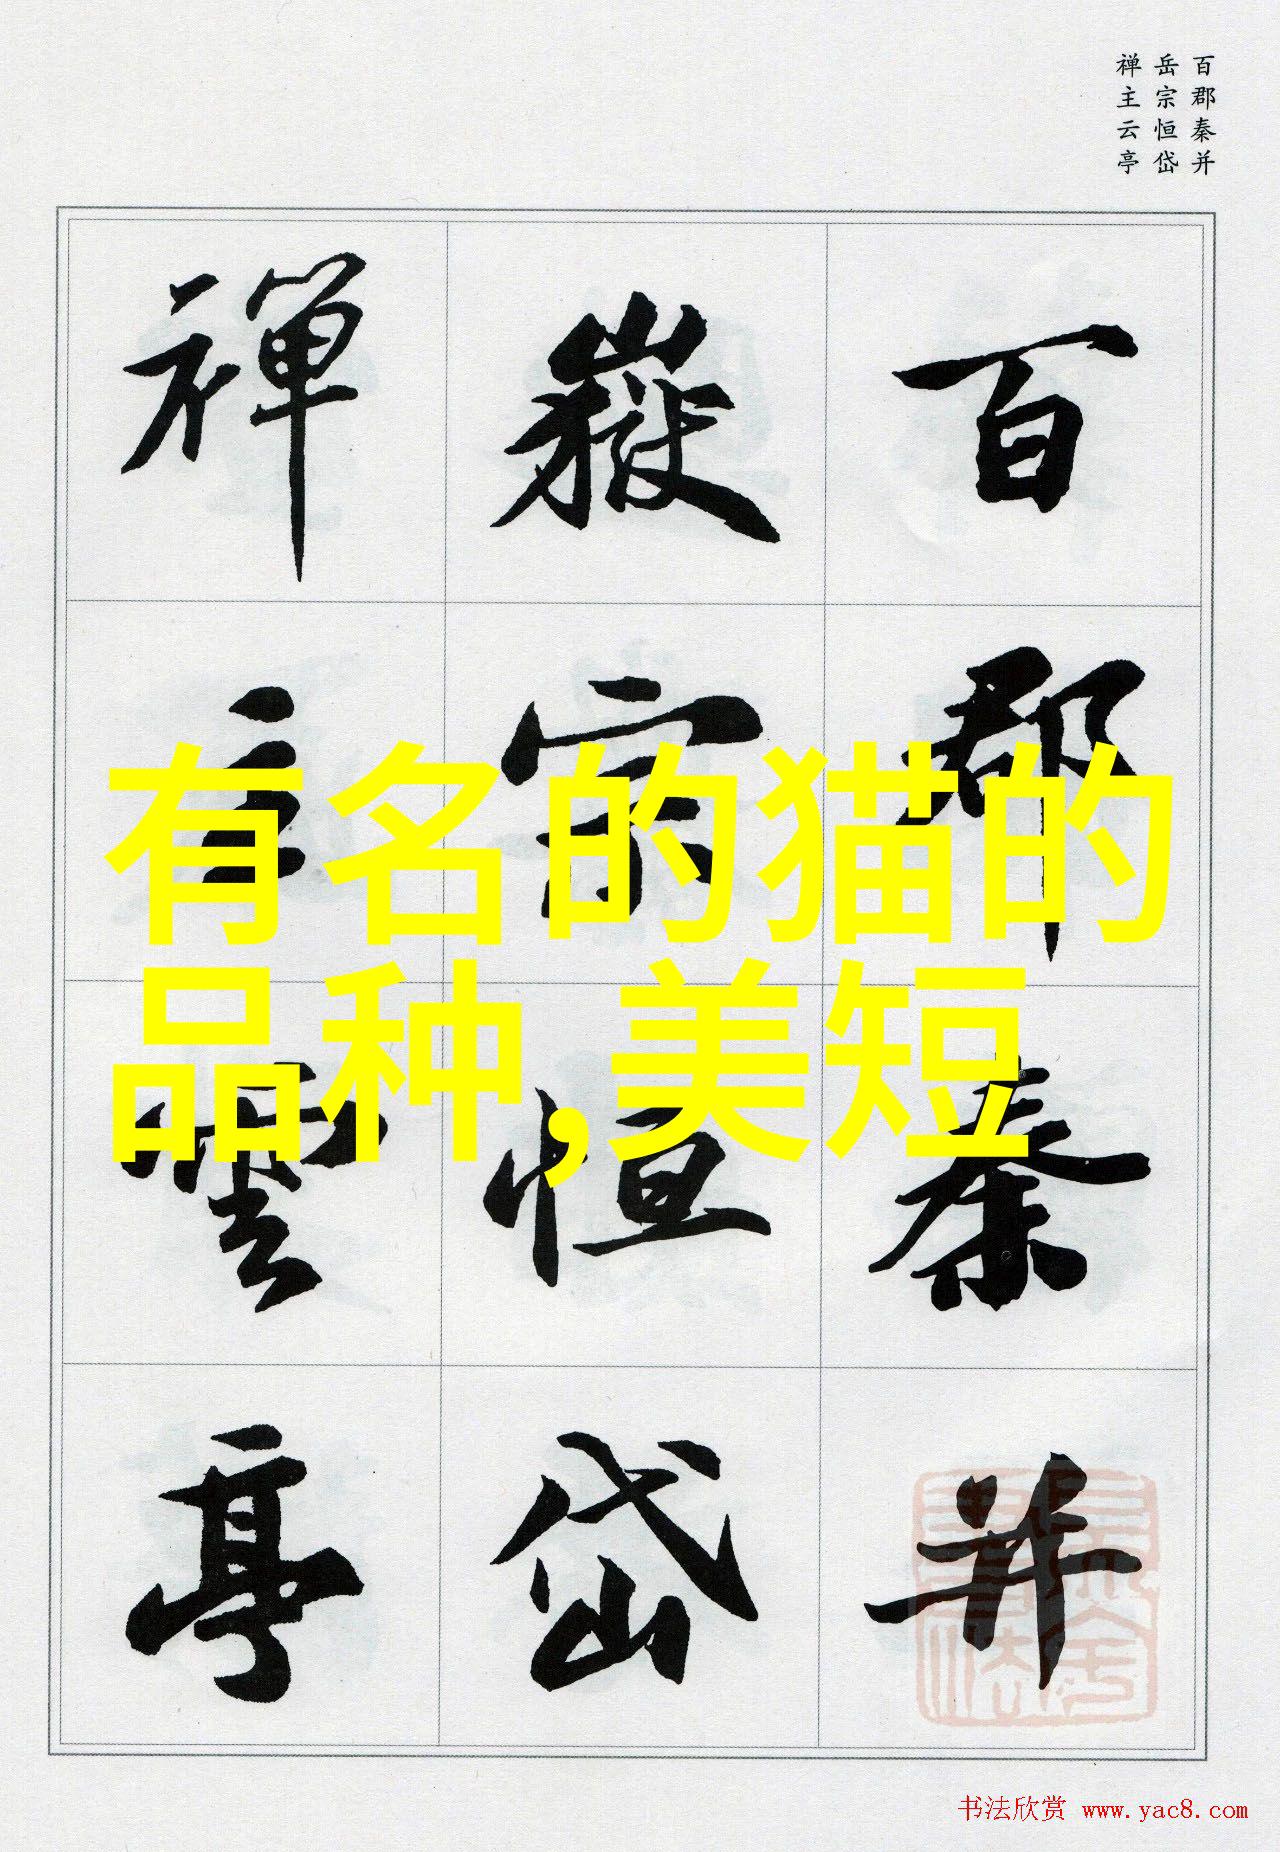 百郡秦并
岳宗恒岱
禅主云亭
百郡秦并
嶽宗恒岱
禅主雲亭
有名的猫的
品种,美短
书法欣赏 www.yac8.com